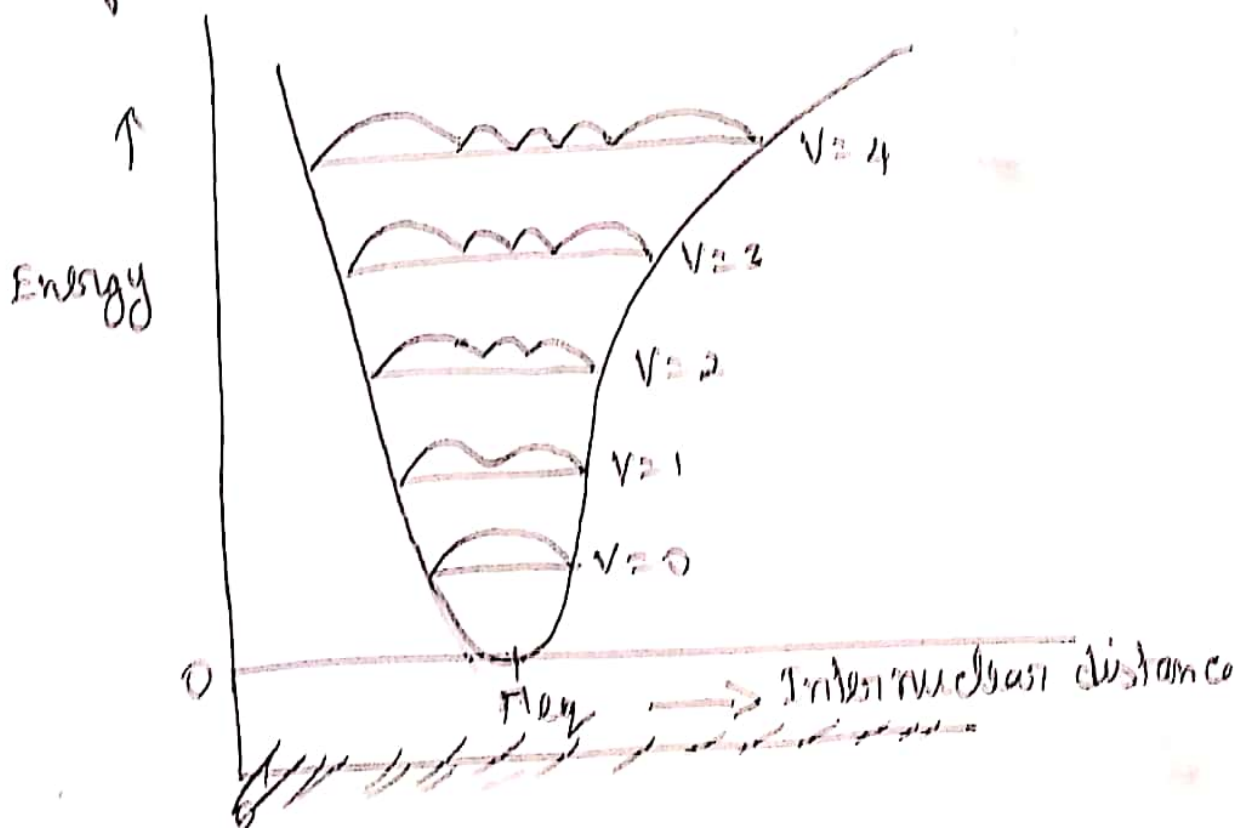 ↑
Energy
V = 4
V = 3
V = 2
V = 1
V = 0
0
req → Internuclear distance